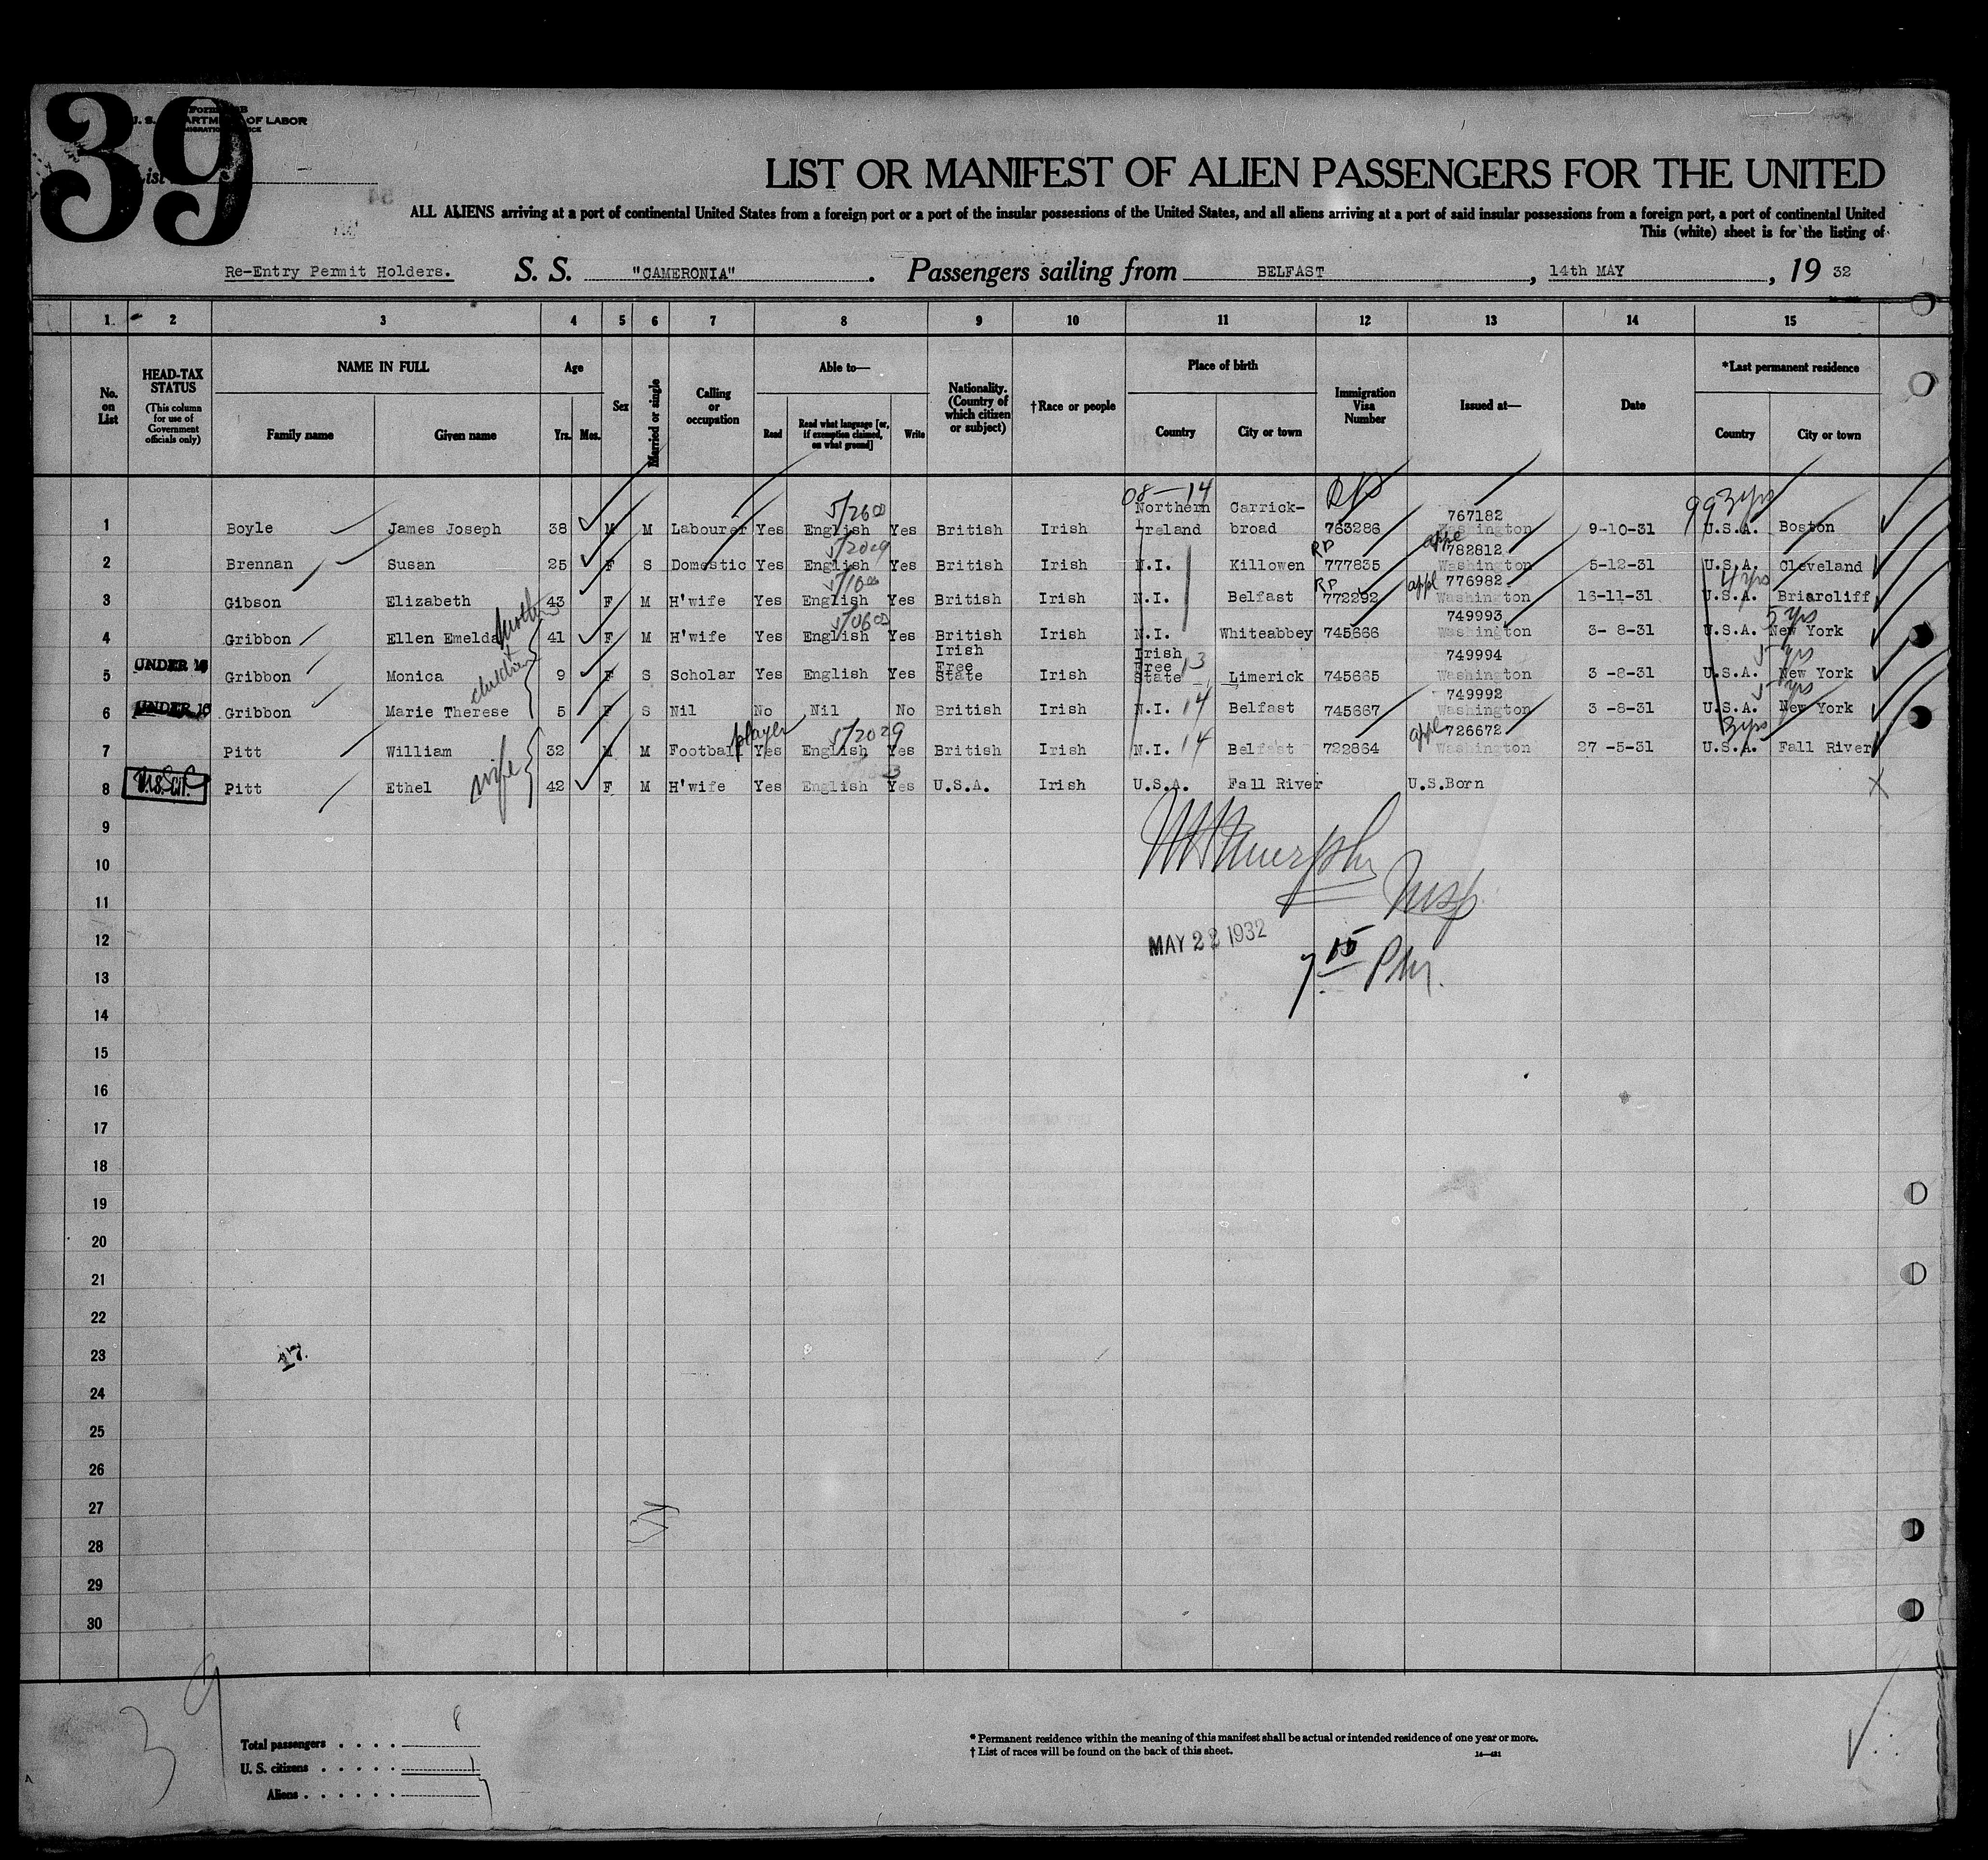 39
U. S. DEPARTMENT OF LABOR
IMMIGRATION SERVICE
List
LIST OR MANIFEST OF ALIEN PASSENGERS FOR THE UNITED
ALL ALIENS arriving at a port of continental United States from a foreign port or a port of the insular possessions of the United States, and all aliens arriving at a port of said insular possessions from a foreign port, a port of continental United
This (white) sheet is for the listing of
Re-Entry Permit Holders. S. S. "CAMERONIA". Passengers sailing from BELFAST, 14th MAY, 19 32
1 2 3 4 5 6 7 8 9 10 11 12 13 14 15
No. on List
HEAD-TAX STATUS (This column for use of Government officials only)
NAME IN FULL Family name Given name
Age Yrs. Mos.
Sex
Married or single
Calling or occupation
Able to— Read Read what language [or, if exemption claimed, on what ground] Write
Nationality. (Country of which citizen or subject)
†Race or people
Place of birth Country City or town
Immigration Visa Number
Issued at—
Date
*Last permanent residence Country City or town
08-14 RP 99 3yrs
5/2600 767182
1 Boyle James Joseph 38 M M Labourer Yes English Yes British Irish Northern Ireland Carrick-broad 763286 Washington 9-10-31 U.S.A. Boston
5/2029 RP appl 782812
2 Brennan Susan 25 F S Domestic Yes English Yes British Irish N.I. Killowen 777835 Washington 5-12-31 U.S.A. Cleveland
RP appl 776982 4yrs
3 Gibson Elizabeth 43 F M H'wife Yes English Yes British Irish N.I. Belfast 772292 Washington 16-11-31 U.S.A. Briarcliff
mother 749993 5 yrs
4 Gribbon Ellen Emelda 41 F M H'wife Yes English Yes British Irish N.I. Whiteabbey 745666 Washington 3- 8-31 U.S.A. New York
children 13 749994 5 yrs
5 UNDER 16 Gribbon Monica 9 F S Scholar Yes English Yes Irish Free State Irish Irish Free State Limerick 745665 Washington 3 -8-31 U.S.A. New York
749992 5 yrs
6 UNDER 16 Gribbon Marie Therese 5 F S Nil No Nil No British Irish N.I. 14 Belfast 745667 Washington 3 -8-31 U.S.A. New York
player 5/2029 appl 726672 3yrs
7 Pitt William 32 M M Football Yes English Yes British Irish N.I. 14 Belfast 722864 Washington 27 -5-31 U.S.A. Fall River
wife
8 U.S. CIT. Pitt Ethel 42 F M H'wife Yes English Yes U.S.A. Irish U.S.A. Fall River U.S.Born X
9
10
Murphy
Insp.
11
12
MAY 22 1932
7 15 PM.
13
14
15
16
17
18
19
20
21
22
23
17.
24
25
26
27
28
29
30
39
Total passengers . . . . 8
U. S. citizens . . . . . 1
Aliens . . . . . . 7
* Permanent residence within the meaning of this manifest shall be actual or intended residence of one year or more.
† List of races will be found on the back of this sheet.
14—421